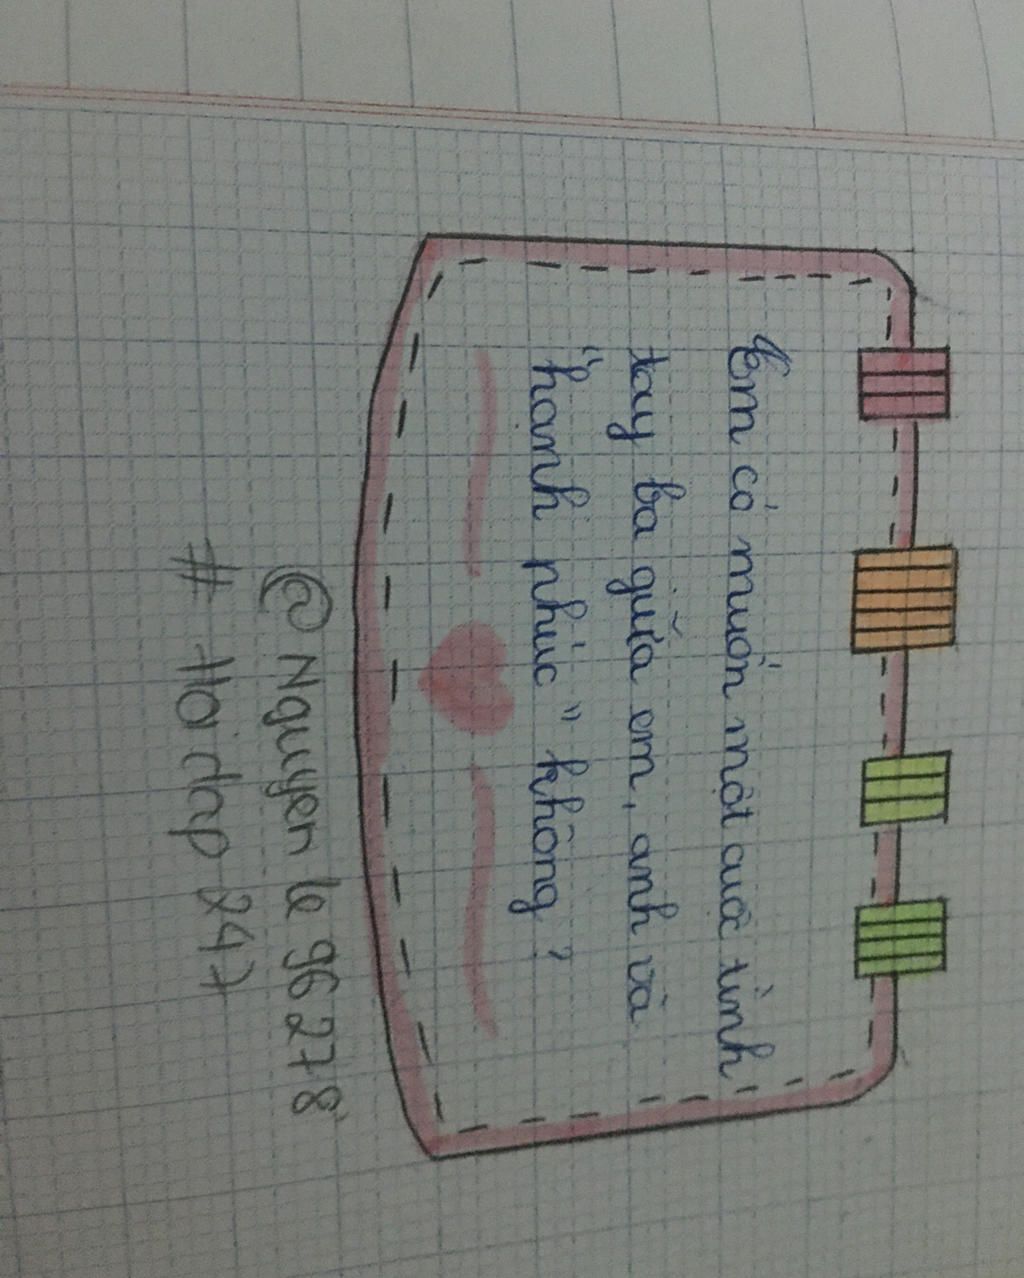 Em có muốn một cuộc tình
tay ba giữa em, anh và
"hạnh phúc" không?
@Nguyen le 96278
# Hoidap 247